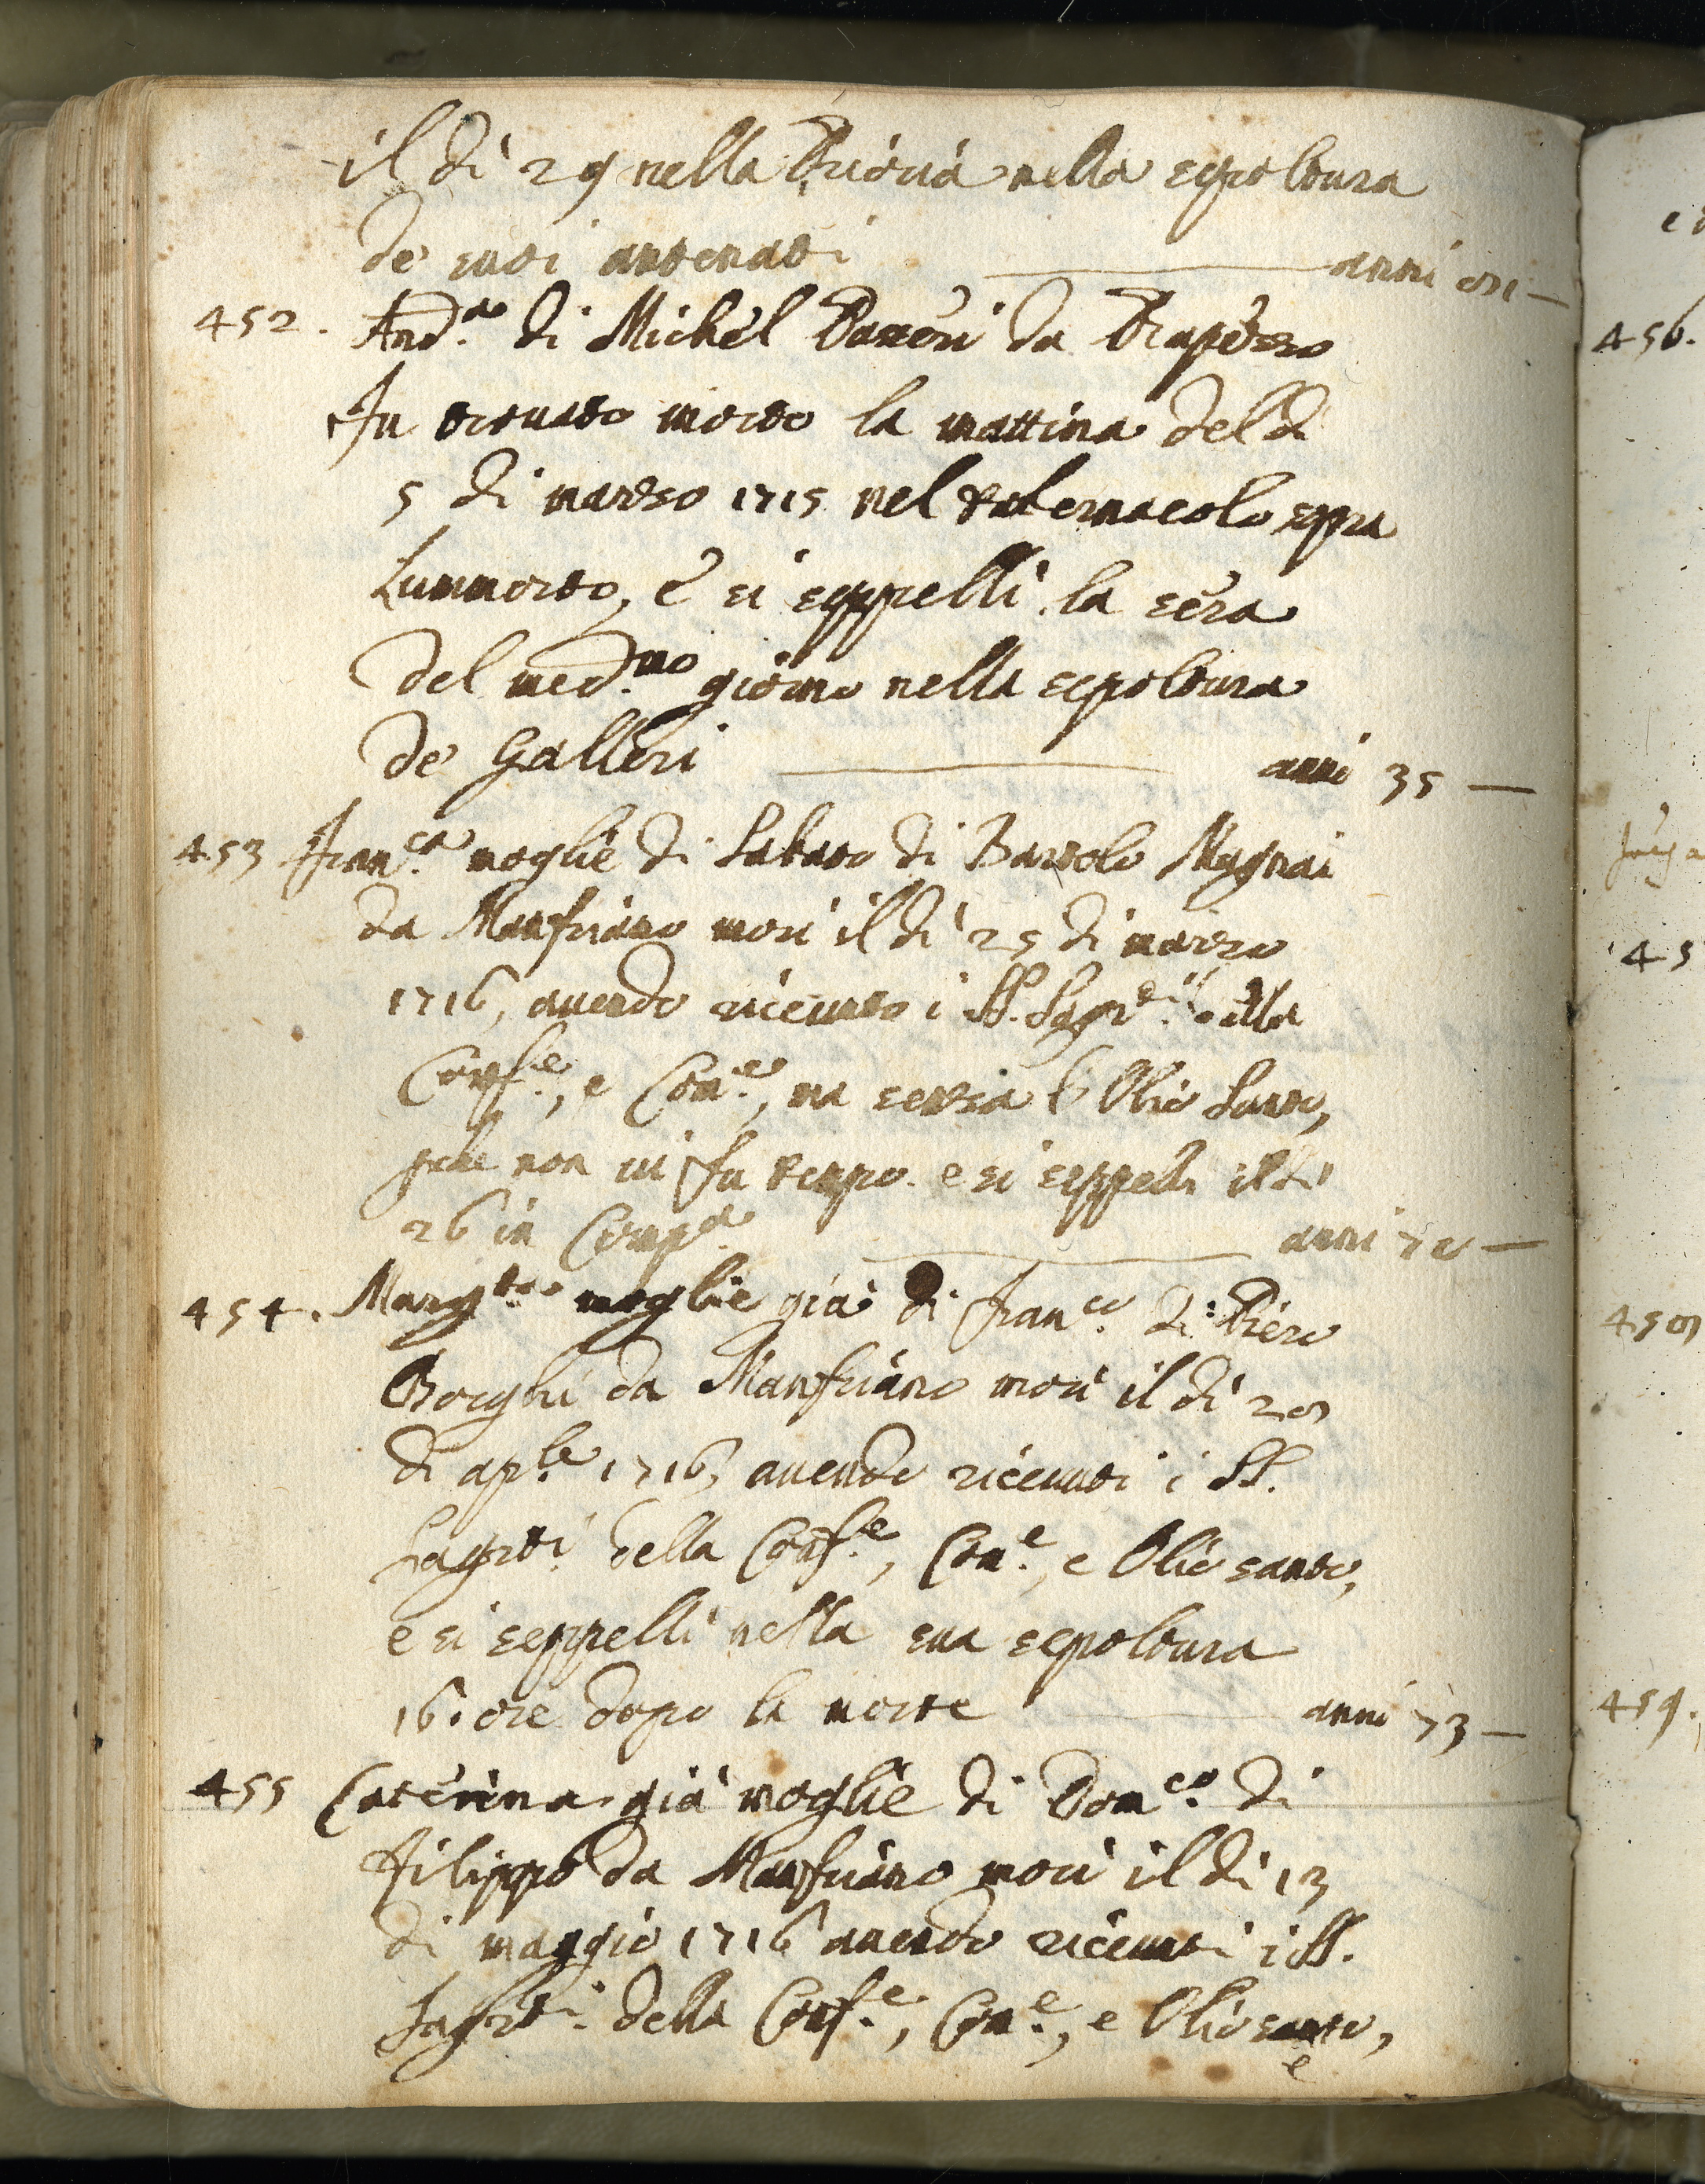 il di 29 nella Prioria nella sepoltura
de suoi antenati anni 81 —
452. And.ª di Michel Pazzeri da Trapezzo
Fu trovato morto la mattina del di
5 di marzo 1715 nel tabernacolo sopra
Lummorto, e si seppelli la sera
del med.mo giorno nella sepoltura
de Galleri anni 35 —
453 Fran.ca moglie di Sabato di Bartolo Magnai
da Manfriano mori il di 25 di marzo
1716, avendo ricevuto i SS. Sagr.ti della
Conf.e, e Com.e, ma senza l'Olio Santo,
pche non vi fu tempo e si seppelli il di
26 in Comp.a anni 70 —
454. Marg.ta moglie già di Fran.co di Piero
Borghi da Manfriano mori il di 28
di ap.le 1716, avendo ricevuti i SS.
Sagr.ti della Conf.e, Com.e, e Olio santo,
e si seppelli nella sua sepoltura
16. ore dopo la morte anni 73 —
455 Caterina già moglie di Dom.co di
Filippo da Manfriano mori il di 13
di maggio 1716 avendo ricevuti i SS.
Sagr.ti della Conf.e, Com.e, e Olio santo,
e
456.
45
458
459.